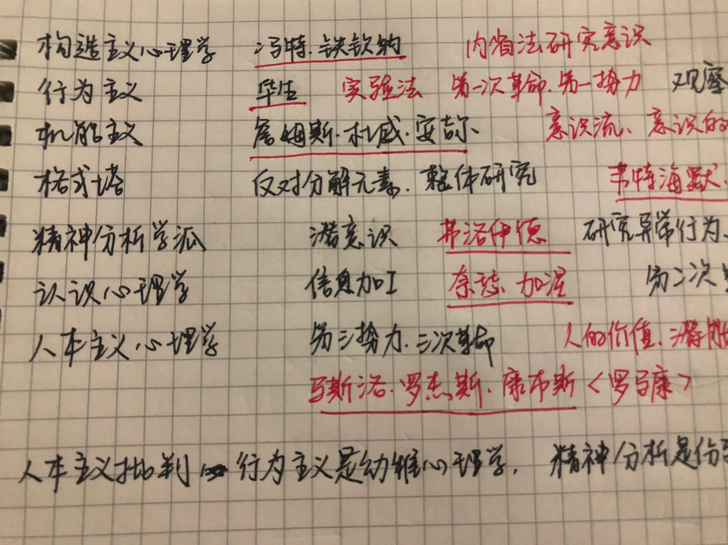 构造主义心理学 冯特.铁钦纳 内省法研究意识
行为主义 华生 实验法 第一次革命.第一势力 观察
机能主义 詹姆斯.杜威.安吉尔 意识流、意识的
格式塔 反对分解元素.整体研究 韦特海默.
精神分析学派 潜意识 弗洛伊德 研究异常行为、
认识心理学 信息加工 奈瑟.加涅 第二次
人本主义心理学 第三势力.三次革命 人的价值.潜能
马斯洛.罗杰斯.康布斯<罗马康>
人本主义批判 行为主义是幼稚心理学. 精神分析是伤